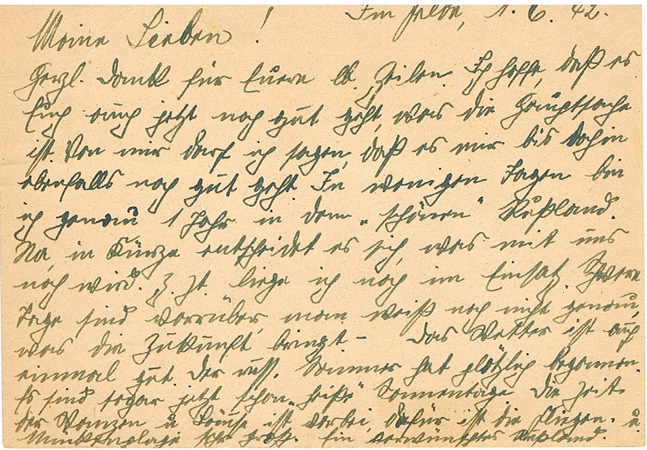 Im Felde, 1. 6. 42.
Meine Lieben!
Herzl. Dank für Euere lb. Zeilen. Ich hoffe, daß es
Euch auch jetzt noch gut geht, was die Hauptsache
ist. Von mir darf ich sagen, daß es mir bis dahin
ebenfalls noch gut geht. In wenigen Tagen bin
ich genau 1 Jahr in dem „schönen" Rußland.
Na, in Kürze entscheidet es sich, was mit uns
noch wird. Z. Zt. liege ich noch im Einsatz. Schwere
Tage sind vorrüber, man weiß noch nicht genau,
was die Zukunft bringt – Das Wetter ist auch
einmal gut. Der russ. Sommer hat plötzlich begonnen.
Es sind sogar jetzt schon „heiße" Sonnentage. Die Zeit
der Wanzen u. Läuse ist vorbei, dafür ist die Fliegen- u.
Mückenplage sehr groß. Ein verwünschtes Rußland.